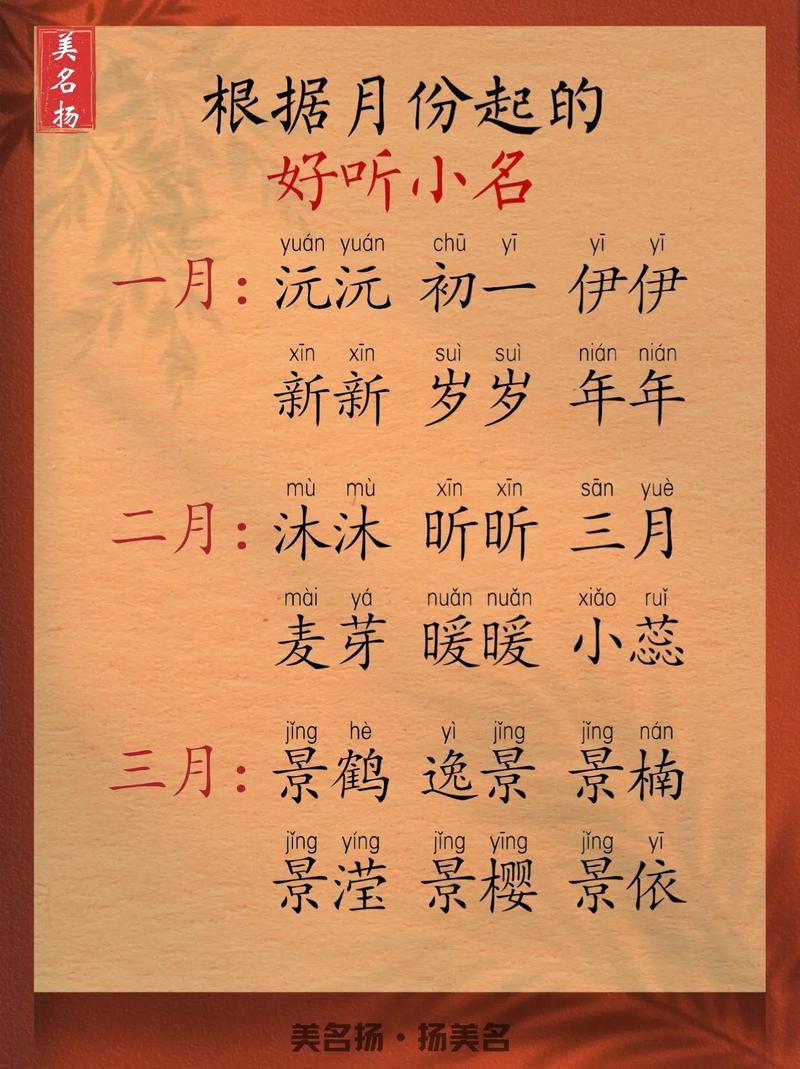 美名扬
根据月份起的
好听小名
yuán yuán chū yī yī yī
一月：沅沅 初一 伊伊
xīn xīn suì suì nián nián
新新 岁岁 年年
mù mù xīn xīn sān yuè
二月：沐沐 昕昕 三月
mài yá nuǎn nuǎn xiǎo ruǐ
麦芽 暖暖 小蕊
jǐng hè yì jǐng jǐng nán
三月：景鹤 逸景 景楠
jǐng yíng jǐng yīng jǐng yī
景滢 景樱 景依
美名扬·扬美名